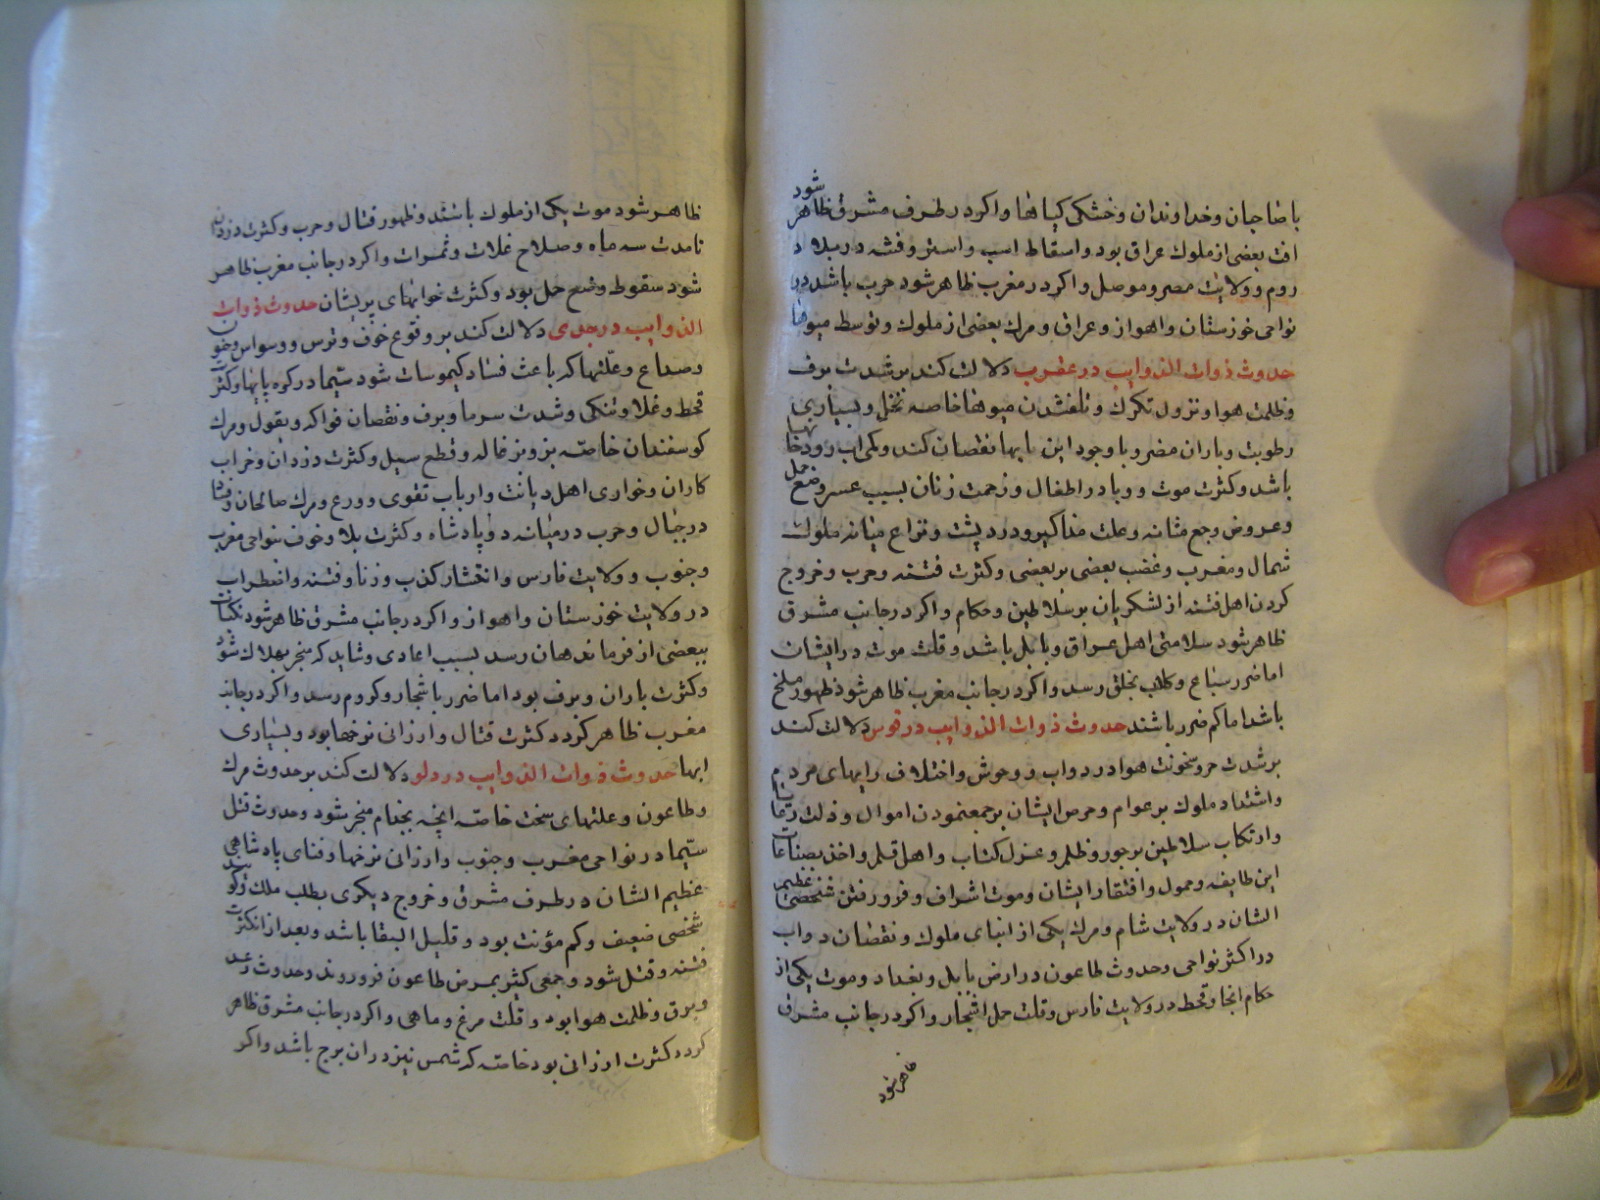 باضاجان وخداوندان وخشکی کیاهها واکر در طرف مشرق ظاهر شود
افت بعضی از ملوک عراق بود واسقاط اسب واستر وفتنه در بلاد
روم وولایت مصر وموصل واکر در مغرب ظاهر شود حرب باشد در
نواحی خوزستان واهواز وعراق ومرک بعضی از ملوک وتوسط میوها
حدوث ذوات الذوایب در عقرب دلالت کند بر شدت برف
وظلمت هوا ونزول تکرک وتلفشدن میوها خاصه نخل وبسیاری
رطوبت وباران مضر وبا وجود این ابها نقصان کند وکمی اب رودخانها
باشد وکثرت موت ووبا در اطفال وزحمت زنان بسبب عسر وضع حمل
وعروض وجع مثانه وعلت مذاکیر ودرد پشت ونزاع میانه ملوک
شمال ومغرب وغضب بعضی بر بعضی وکثرت فتنه وحرب وخروج
کردن اهل فتنه از لشکریان بر سلاطین وحکام واکر در جانب مشرق
ظاهر شود سلامتی اهل عراق وبابل باشد وقلت موت در ایشان
اما ضرر سباع وکلاب بخلق رسد واکر در جانب مغرب ظاهر شود ظهور ملخ
باشد اما کم ضرر باشند حدوث ذوات الذوایب در قوس دلالت کند
بر شدت حر وسخونت هوا در دواب ووحوش واختلاف رایهای مردم
واشتداد ملوک بر عوام وحرص ایشان بر جمعنمودن اموال وذلت رعایا
وارتکاب سلاطین بر جور وظلم وعزل کتاب واهل قلم واخذ بضاعات
این طایفه وخمول وافتقار ایشان وموت اشراف وفرو رفتن شخصی عظیم
الشان در ولایت شام ومرک یکی از ابنای ملوک ونقصان دواب
در اکثر نواحی وحدوث طاعون در ارض بابل وبغداد وموت یکی از
حکام انجا وقحط در ولایت فارس وقلت حمل اشجار واکر در جانب مشرق
ظاهر شود
ظاهر شود موت یکی از ملوک باشد وظهور قتال وحرب وکثرت دزدان
تا مدت سه ماه وصلاح غلات وثمرات واکر در جانب مغرب ظاهر
شود سقوط وضع حمل بود وکثرت خوابهای پریشان حدوث ذوات
الذوایب در جدی دلالت کند بر وقوع خوف وترس ووسواس وجنون
وصداع وعلتها که باعث فساد کیموسات شود سیما در کوه پایها وکثرت
قحط وغلا وتنکی وشدت سرما وبرف ونقصان فواکه وبقول ومرک
کوسفندان خاصه بز وبزغاله وقطع سبیل وکثرت دزدان وخراب
کاران وخواری اهل دیانت وارباب تقوی وورع ومرک صالحان وفساد
در جبال وحرب در میانه دو پادشاه وکثرت بلا وخوف بنواحی مغرب
وجنوب وولایت فارس وانتشار کذب وزنا وفتنه واضطراب
در ولایت خوزستان واهواز واکر در جانب مشرق ظاهر شود نکبات
ببعضی از فرماندهان رسد بسبب اعادی وشاید که منجر بهلاک شود
وکثرت باران وبرف بود اما ضرر باشجار وکروم رسد واکر در جانب
مغرب ظاهر کردد کثرت قتال وارزانی نرخها بود وبسیاری
ابها حدوث ذوات الذوایب در دلو دلالت کند بر حدوث مرک
وطاعون وعلتهای سخت خاصه انچه بجذام منجر شود وحدوث قتل
سیما در نواحی مغرب وجنوب وارزانی نرخها وفنای پادشاهی
عظیم الشان در طرف مشرق وخروج دیکری بطلب ملک
شخصی ضعیف وکم مؤنت بود وقلیل البقا باشد وبعد از ان کثرت
فتنه وقتل شود وجمعی کثیر بمرض طاعون فرو روند وحدوث رعد
وبرق وظلمت هوا بود وقلت مرغ وماهی واکر در جانب مشرق ظاهر
کردد کثرت ارزانی بود خاصه که شمس نیز در ان برج باشد واکر